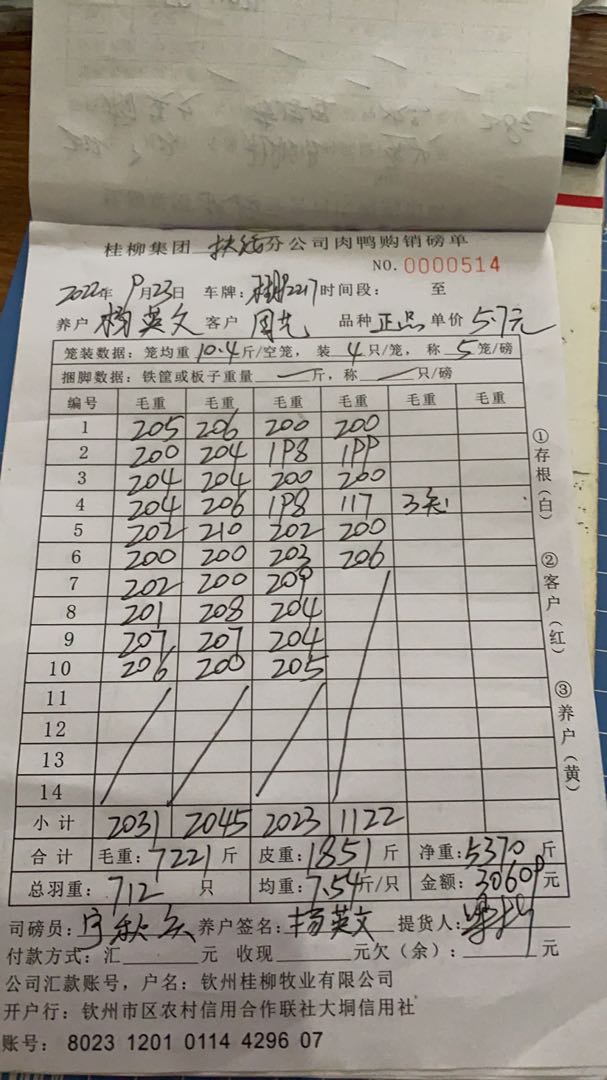 桂柳集团 扶绥分公司肉鸭购销磅单
NO.0000514
2022年 9月23日 车牌: 2217时间段: 至
养户 杨英文 客户 周先 品种 正品 单价 5.7元
笼装数据: 笼均重 10.4 斤/空笼, 装 4 只/笼, 称 5 笼/磅
捆脚数据: 铁筐或板子重量 — 斤, 称 — 只/磅
编号 毛重 毛重 毛重 毛重 毛重 毛重
1 205 206 200 200
2 200 204 198 199
3 204 204 200 200
4 204 206 198 117 3笼
5 202 210 202 200
6 200 200 203 206
7 202 200 209
8 201 208 204
9 207 207 204
10 206 200 205
11
12
13
14
小计 2031 2045 2023 1122
合计 毛重: 7221 斤 皮重: 1851 斤 净重: 5370 斤
总羽重: 712 只 均重: 7.54 斤/只 金额: 30609 元
司磅员: 养户签名: 杨英文 提货人:
付款方式: 汇 元 收现 元欠(余): 元
公司汇款账号, 户名: 钦州桂柳牧业有限公司
开户行: 钦州市区农村信用合作联社大垌信用社
账号: 8023 1201 0114 4296 07
①存根(白)
②客户(红)
③养户(黄)